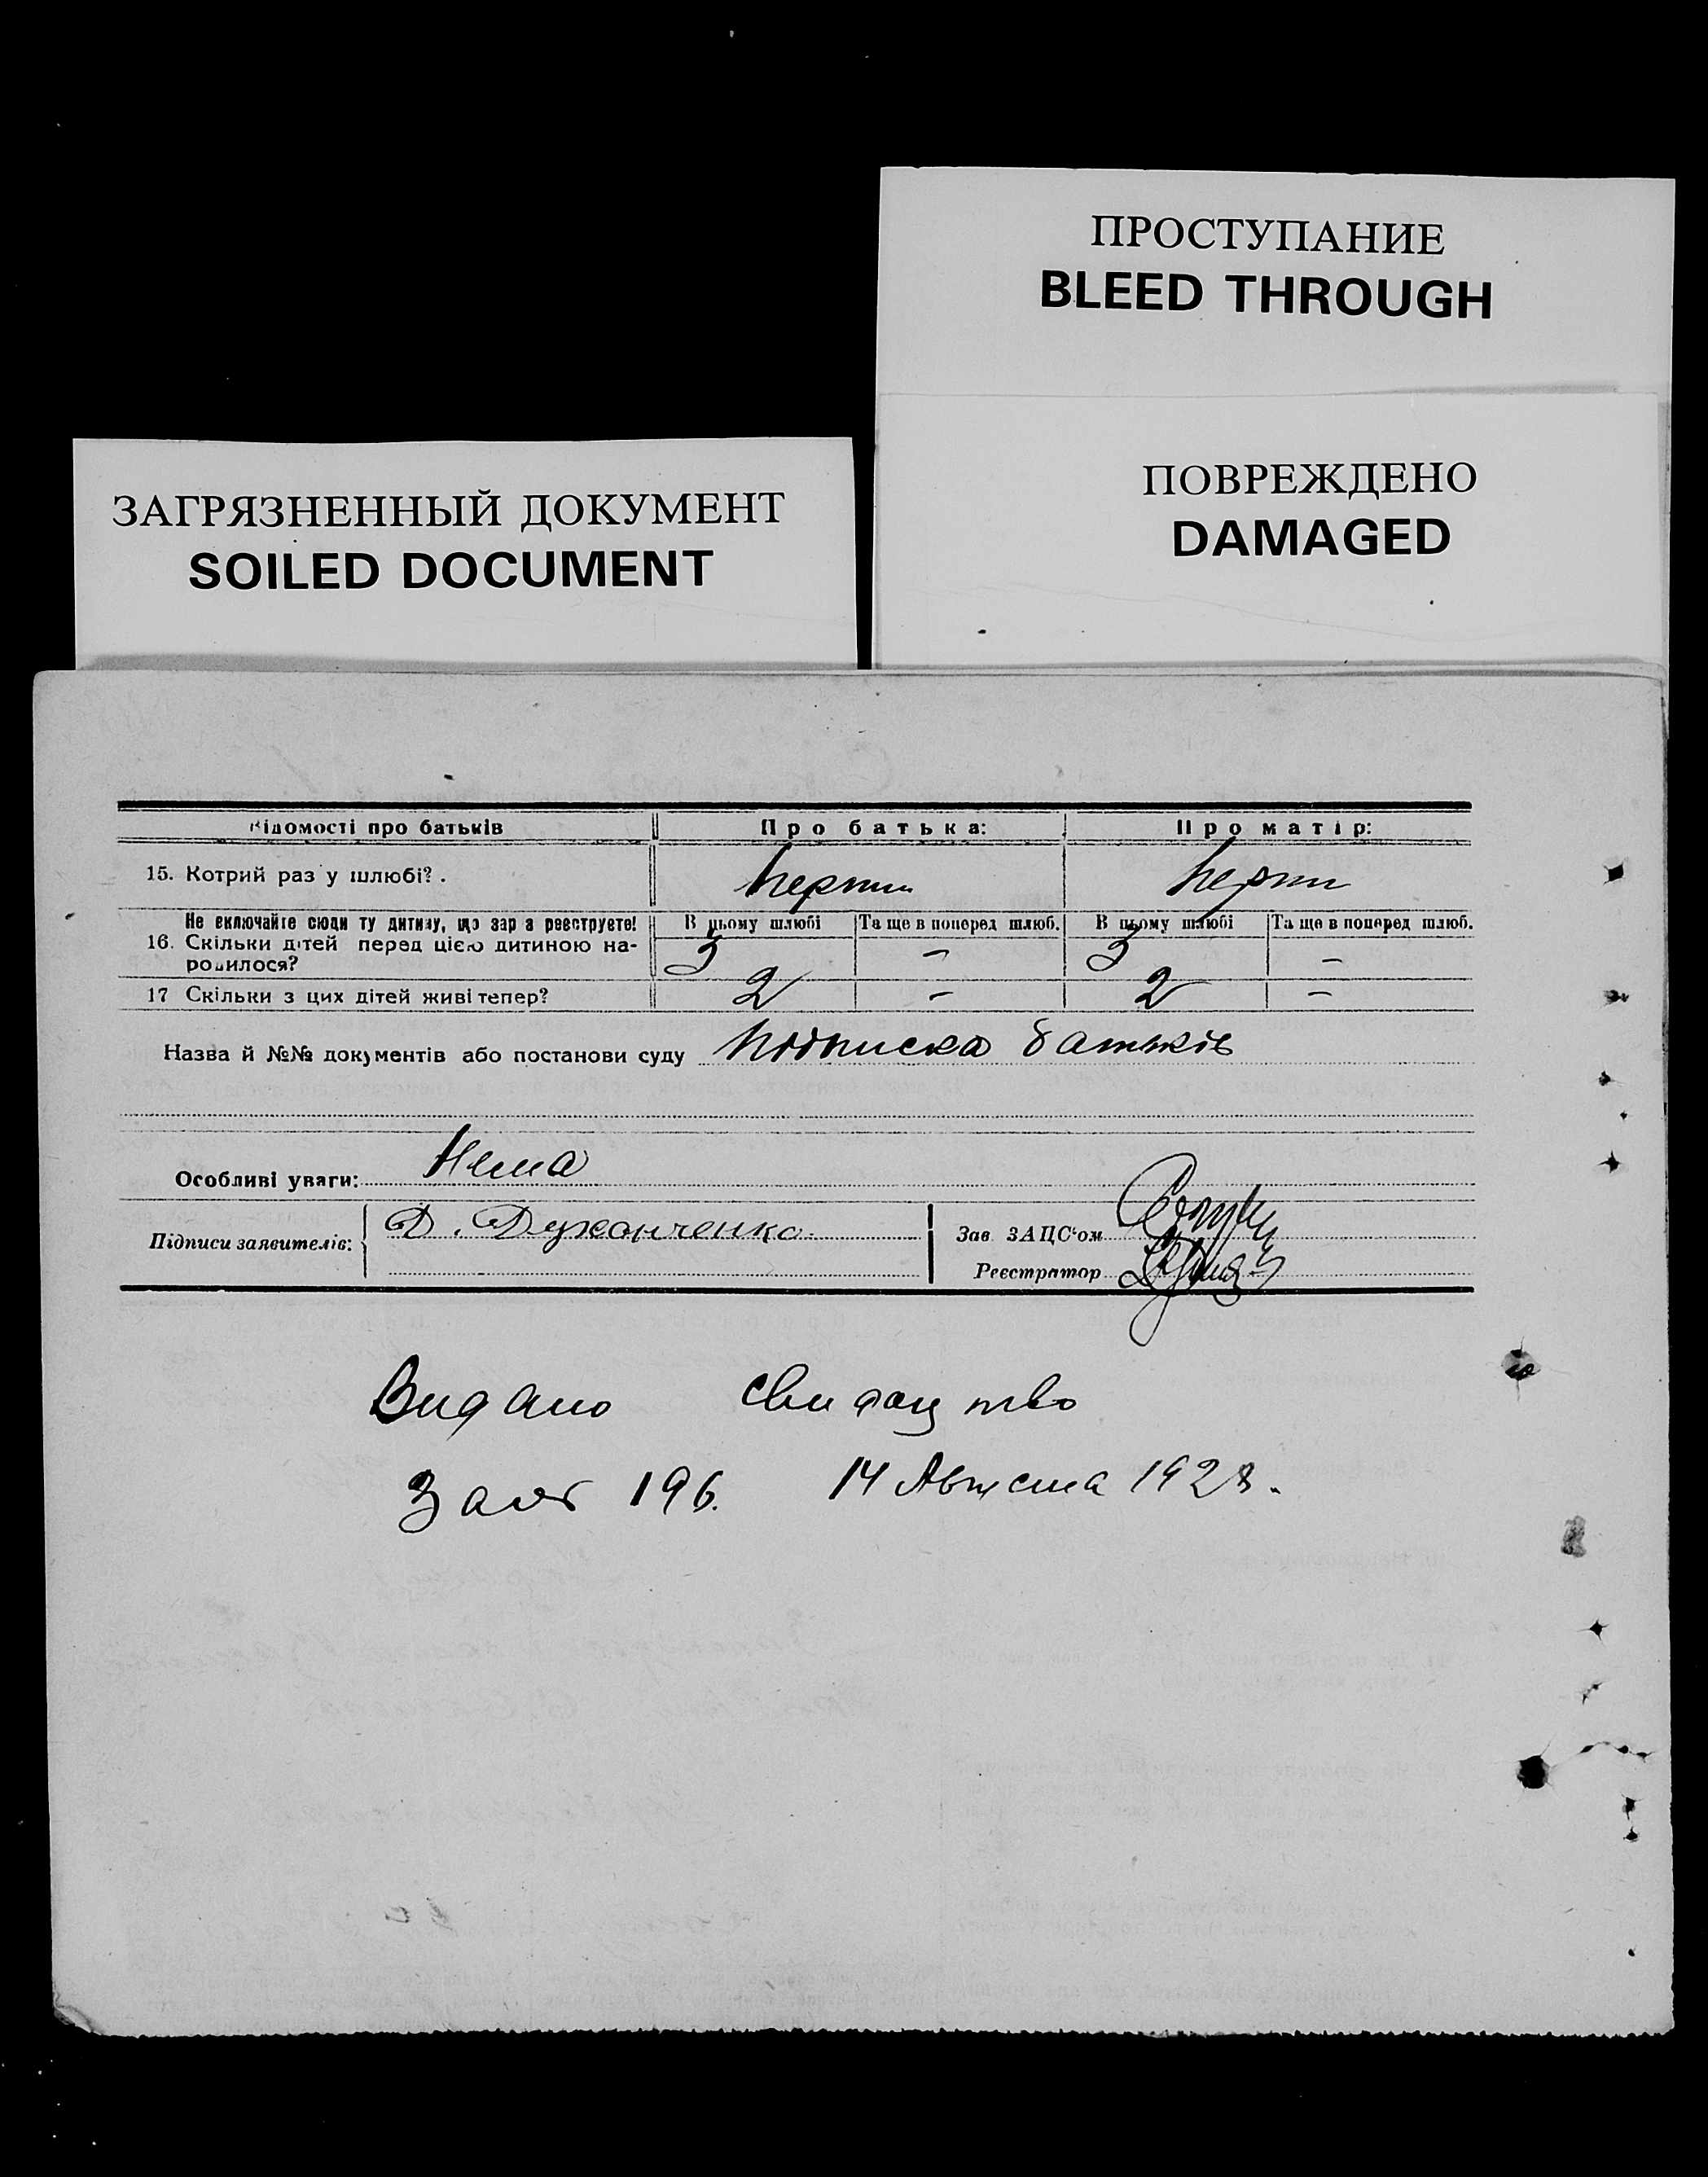 ПРОСТУПАНИЕ
BLEED THROUGH
ПОВРЕЖДЕНО
DAMAGED
ЗАГРЯЗНЕННЫЙ ДОКУМЕНТ
SOILED DOCUMENT
Відомості про батьків Про батька: Про матір:
15. Котрий раз у шлюбі? . перший перший
Не включайте сюди ту дитину, що зараз реєструєте! В цьому шлюбі Та ще в поперед шлюб. В цьому шлюбі Та ще в поперед шлюб.
16. Скільки дітей перед цією дитиною на-
родилося? 3 – 3 –
17 Скільки з цих дітей живі тепер? 2 – 2 –
Назва й №№ документів або постанови суду Підписка батьків
Особливі уваги: Нема
Підписи заявителів: Д.
Зав. ЗАЦС'ом
Реєстратор
Видано свидоцтво
196. 14 Августа 1928.